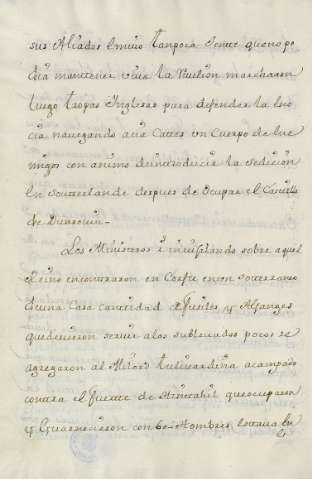 sus Aliados embio tan poca Jente que no po
dia mantener viva la Reelion marcharon
luego tropas Inglesas para defender la Esco
cia navegando acia Cattes un Cuerpo de ene
migos con animo de introducir la sedicion
en soutterlande despues de Ocupar el Castillo
de Dunrovin.
Los Ministros è invijilando sobre aquel
Reino encontraron en Corfte en un soterraneo
de una Casa cantidad de fusiles, y Alfanges
que devieron servir a los sublevados pocos se
agregaron al Milord tullivardina acampado
contra el fuerte de que ocuparon
y Guarnecieron con 60 Hombres tentava en